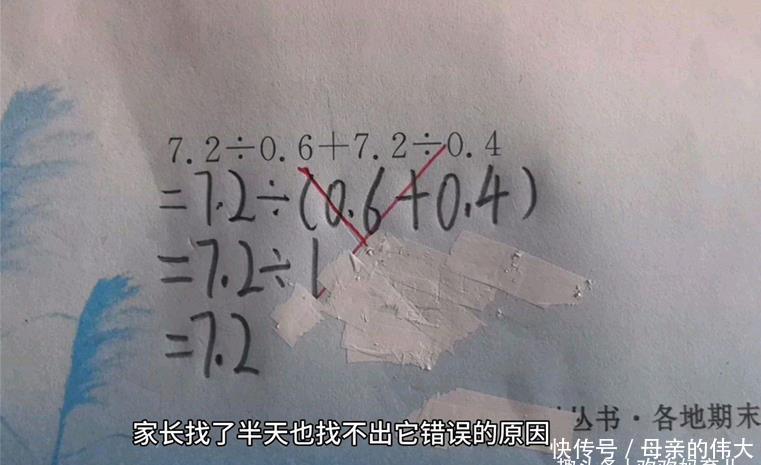 7.2÷0.6+7.2÷0.4
=7.2÷(0.6+0.4)
=7.2÷1
=7.2
丛书·各地期末
家长找了半天也找不出它错误的原因
快传号/母亲的伟大